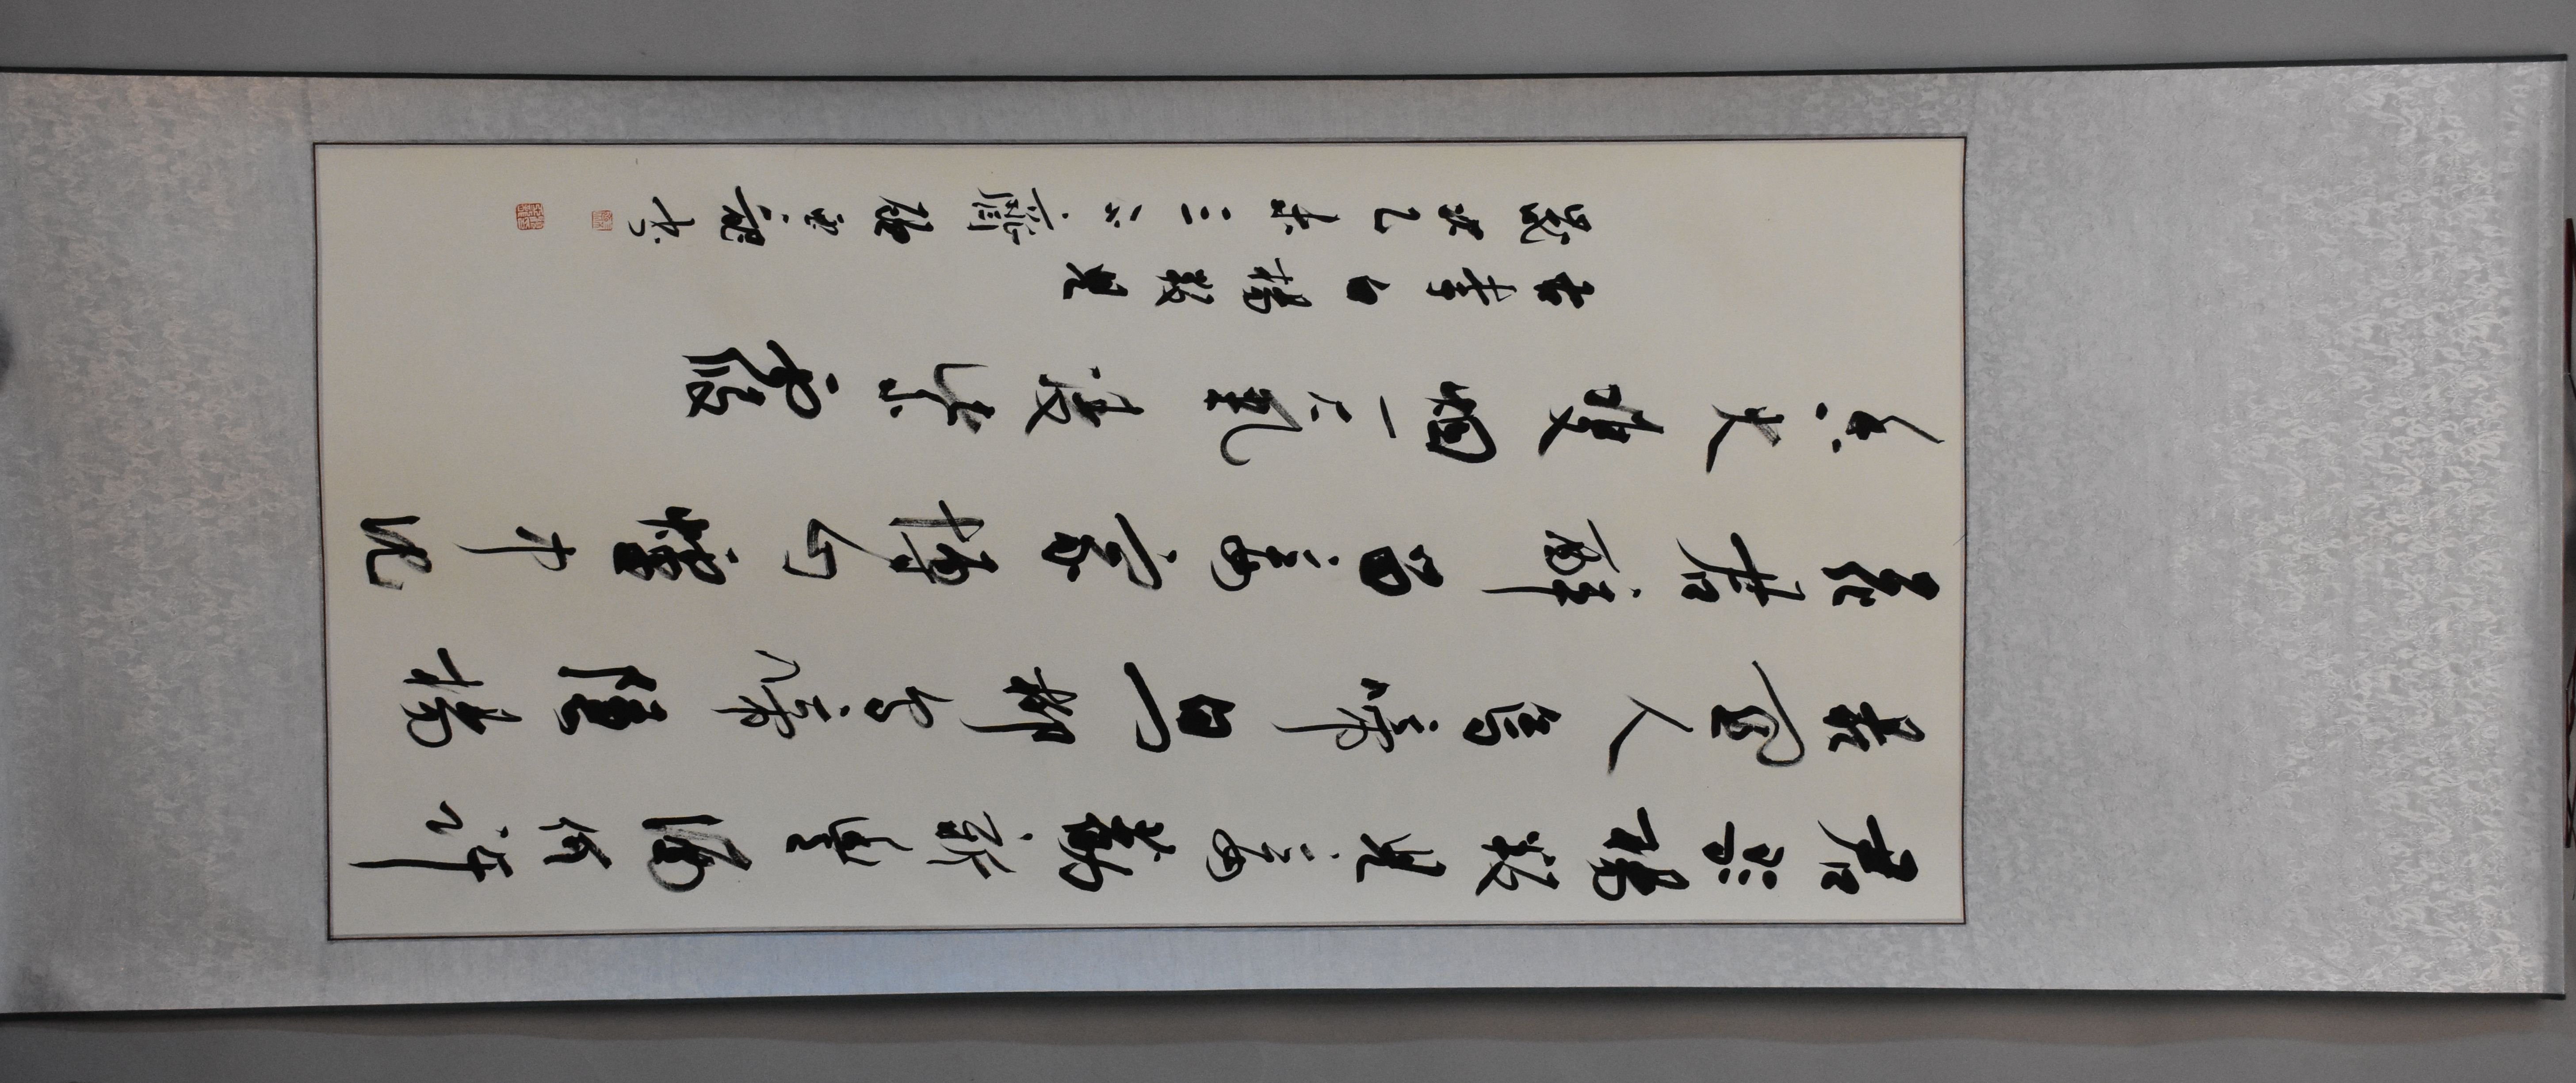 君歌楊叛兒妾勸新豐酒何許
最關人烏啼白門柳烏啼隱楊
花君醉留妾家博山爐中沈
香火雙烟一氣凌紫霞
右李白楊叛兒
歲次乙未三齋書